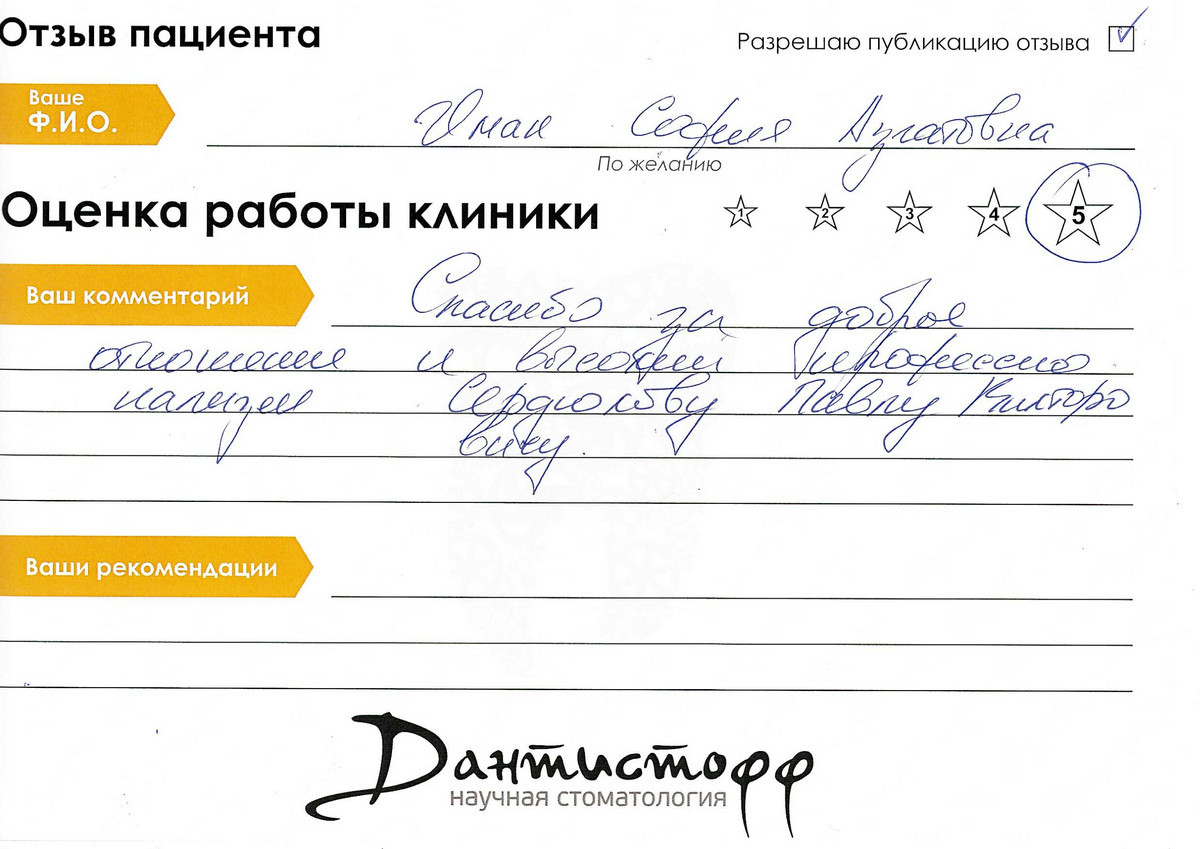 Отзыв пациента
Разрешаю публикацию отзыва
Ваше
Ф.И.О.
София Азатовна
По желанию
Оценка работы клиники
1 2 3 4 5
Ваш комментарий
Спасибо за доброе
отношение и высокий профессио
нализм Сердюкову Павлу Викторо
вичу.
Ваши рекомендации
Дантистофф
научная стоматология